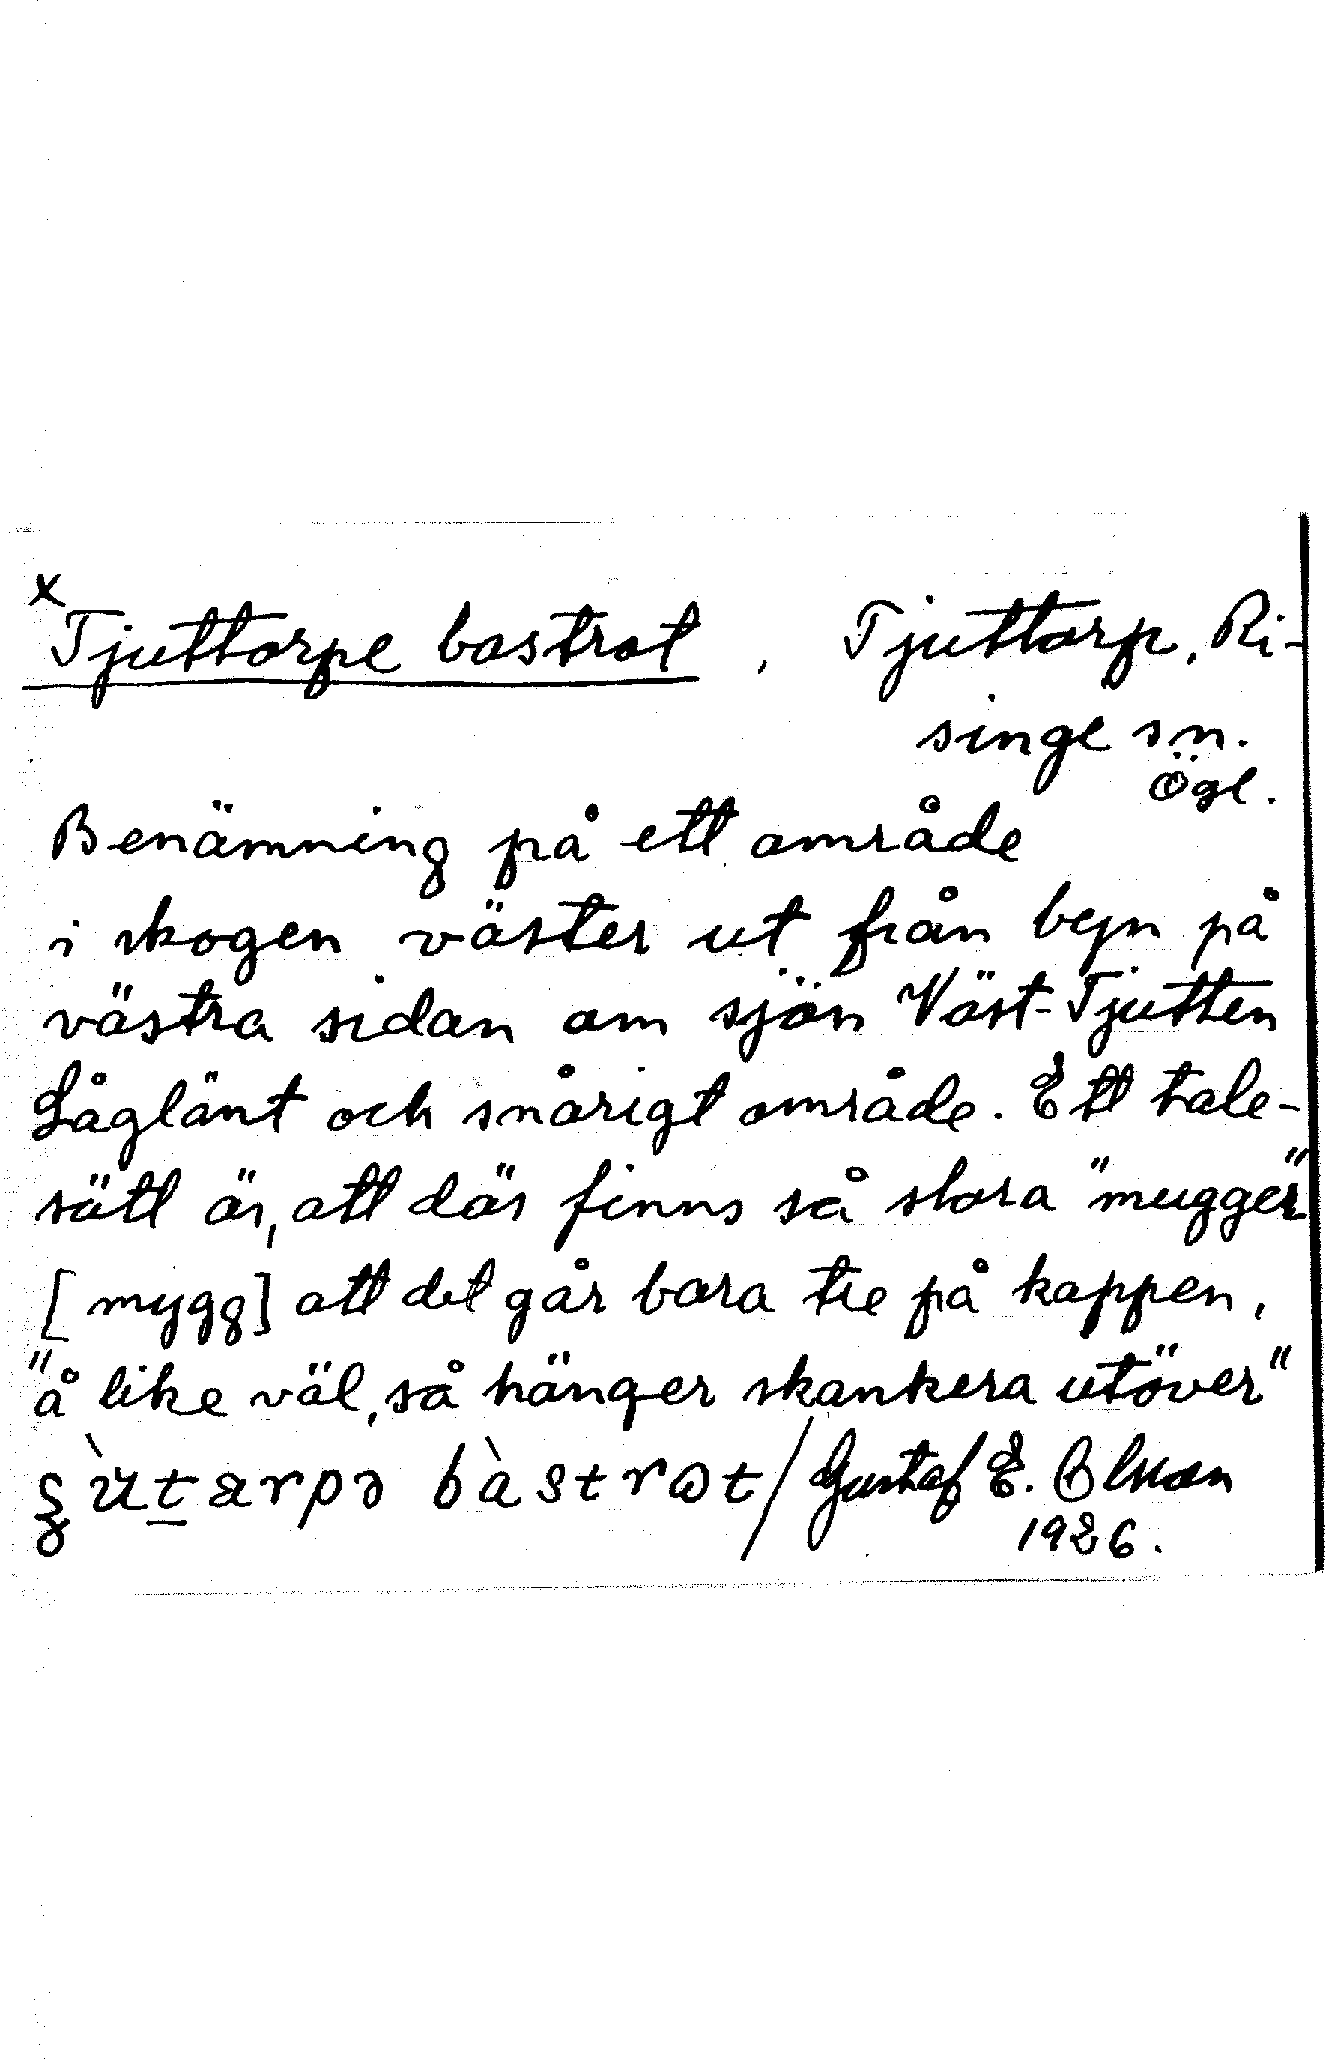 x
Tjuttorpe bastrot , Tjuttorp, Ri-
singe sn.
Ögl.
Benämning på ett område
i skogen väster ut från byn på
västra sidan om sjön Väst-Tjutten
Låglänt och snårigt område. Ett tale-
sätt är, att där finns så stora "mugger"
[mygg] att det går bara tie på kappen,
"å like väl, så hänger skankera utöver"
bàstrɷt / Gustaf E. Olsson
1926.